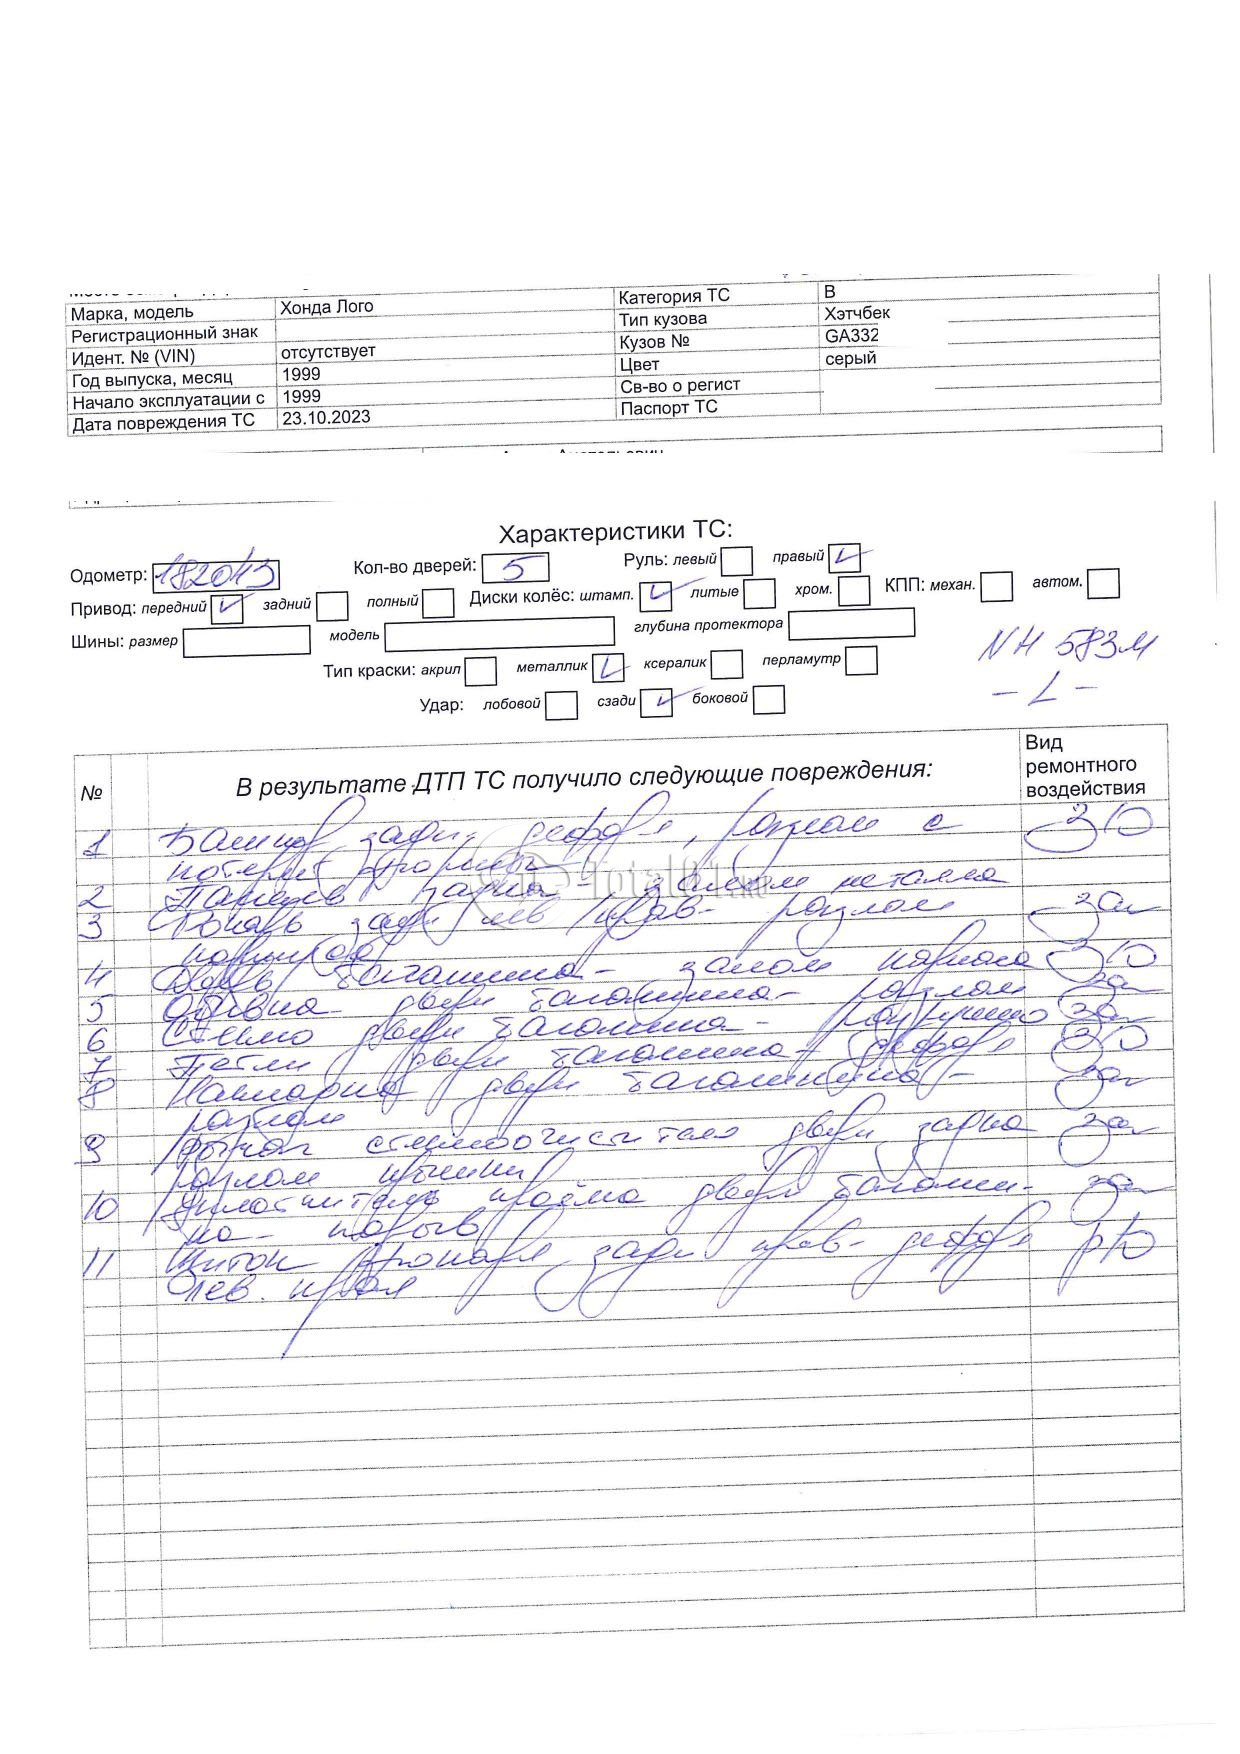 Марка, модель Хонда Лого Категория ТС В
Регистрационный знак Тип кузова Хэтчбек
Идент. № (VIN) отсутствует Кузов № GA332
Год выпуска, месяц 1999 Цвет серый
Начало эксплуатации с 1999 Св-во о регист
Дата повреждения ТС 23.10.2023 Паспорт ТС
Характеристики ТС:
Одометр: 182013 Кол-во дверей: 5 Руль: левый правый
Привод: передний задний полный Диски колёс: штамп. литые хром. КПП: механ. автом.
Шины: размер модель глубина протектора
NH 583M
Тип краски: акрил металлик ксералик перламутр
- L -
Удар: лобовой сзади боковой
№ В результате ДТП ТС получило следующие повреждения: Вид ремонтного воздействия
1 Бампер задн. деформ, разлом с
потерей
Total01.ru
2 Панель задка - залом металла
3 Фонарь задн лев/прав - разлом
корпусов
4 Дверь багажника - залом каркаса
5 Обивка двери багажника - разлом
6 Стекло двери багажника - разрушено
7 Петли двери багажника - деформ
8 Накладка двери багажника -
разлом
9 Рычаг стеклоочистителя двери задка
разлом
10 Уплотнитель проёма двери багажни-
ка - порыв
11 фонаря задн прав - деформ